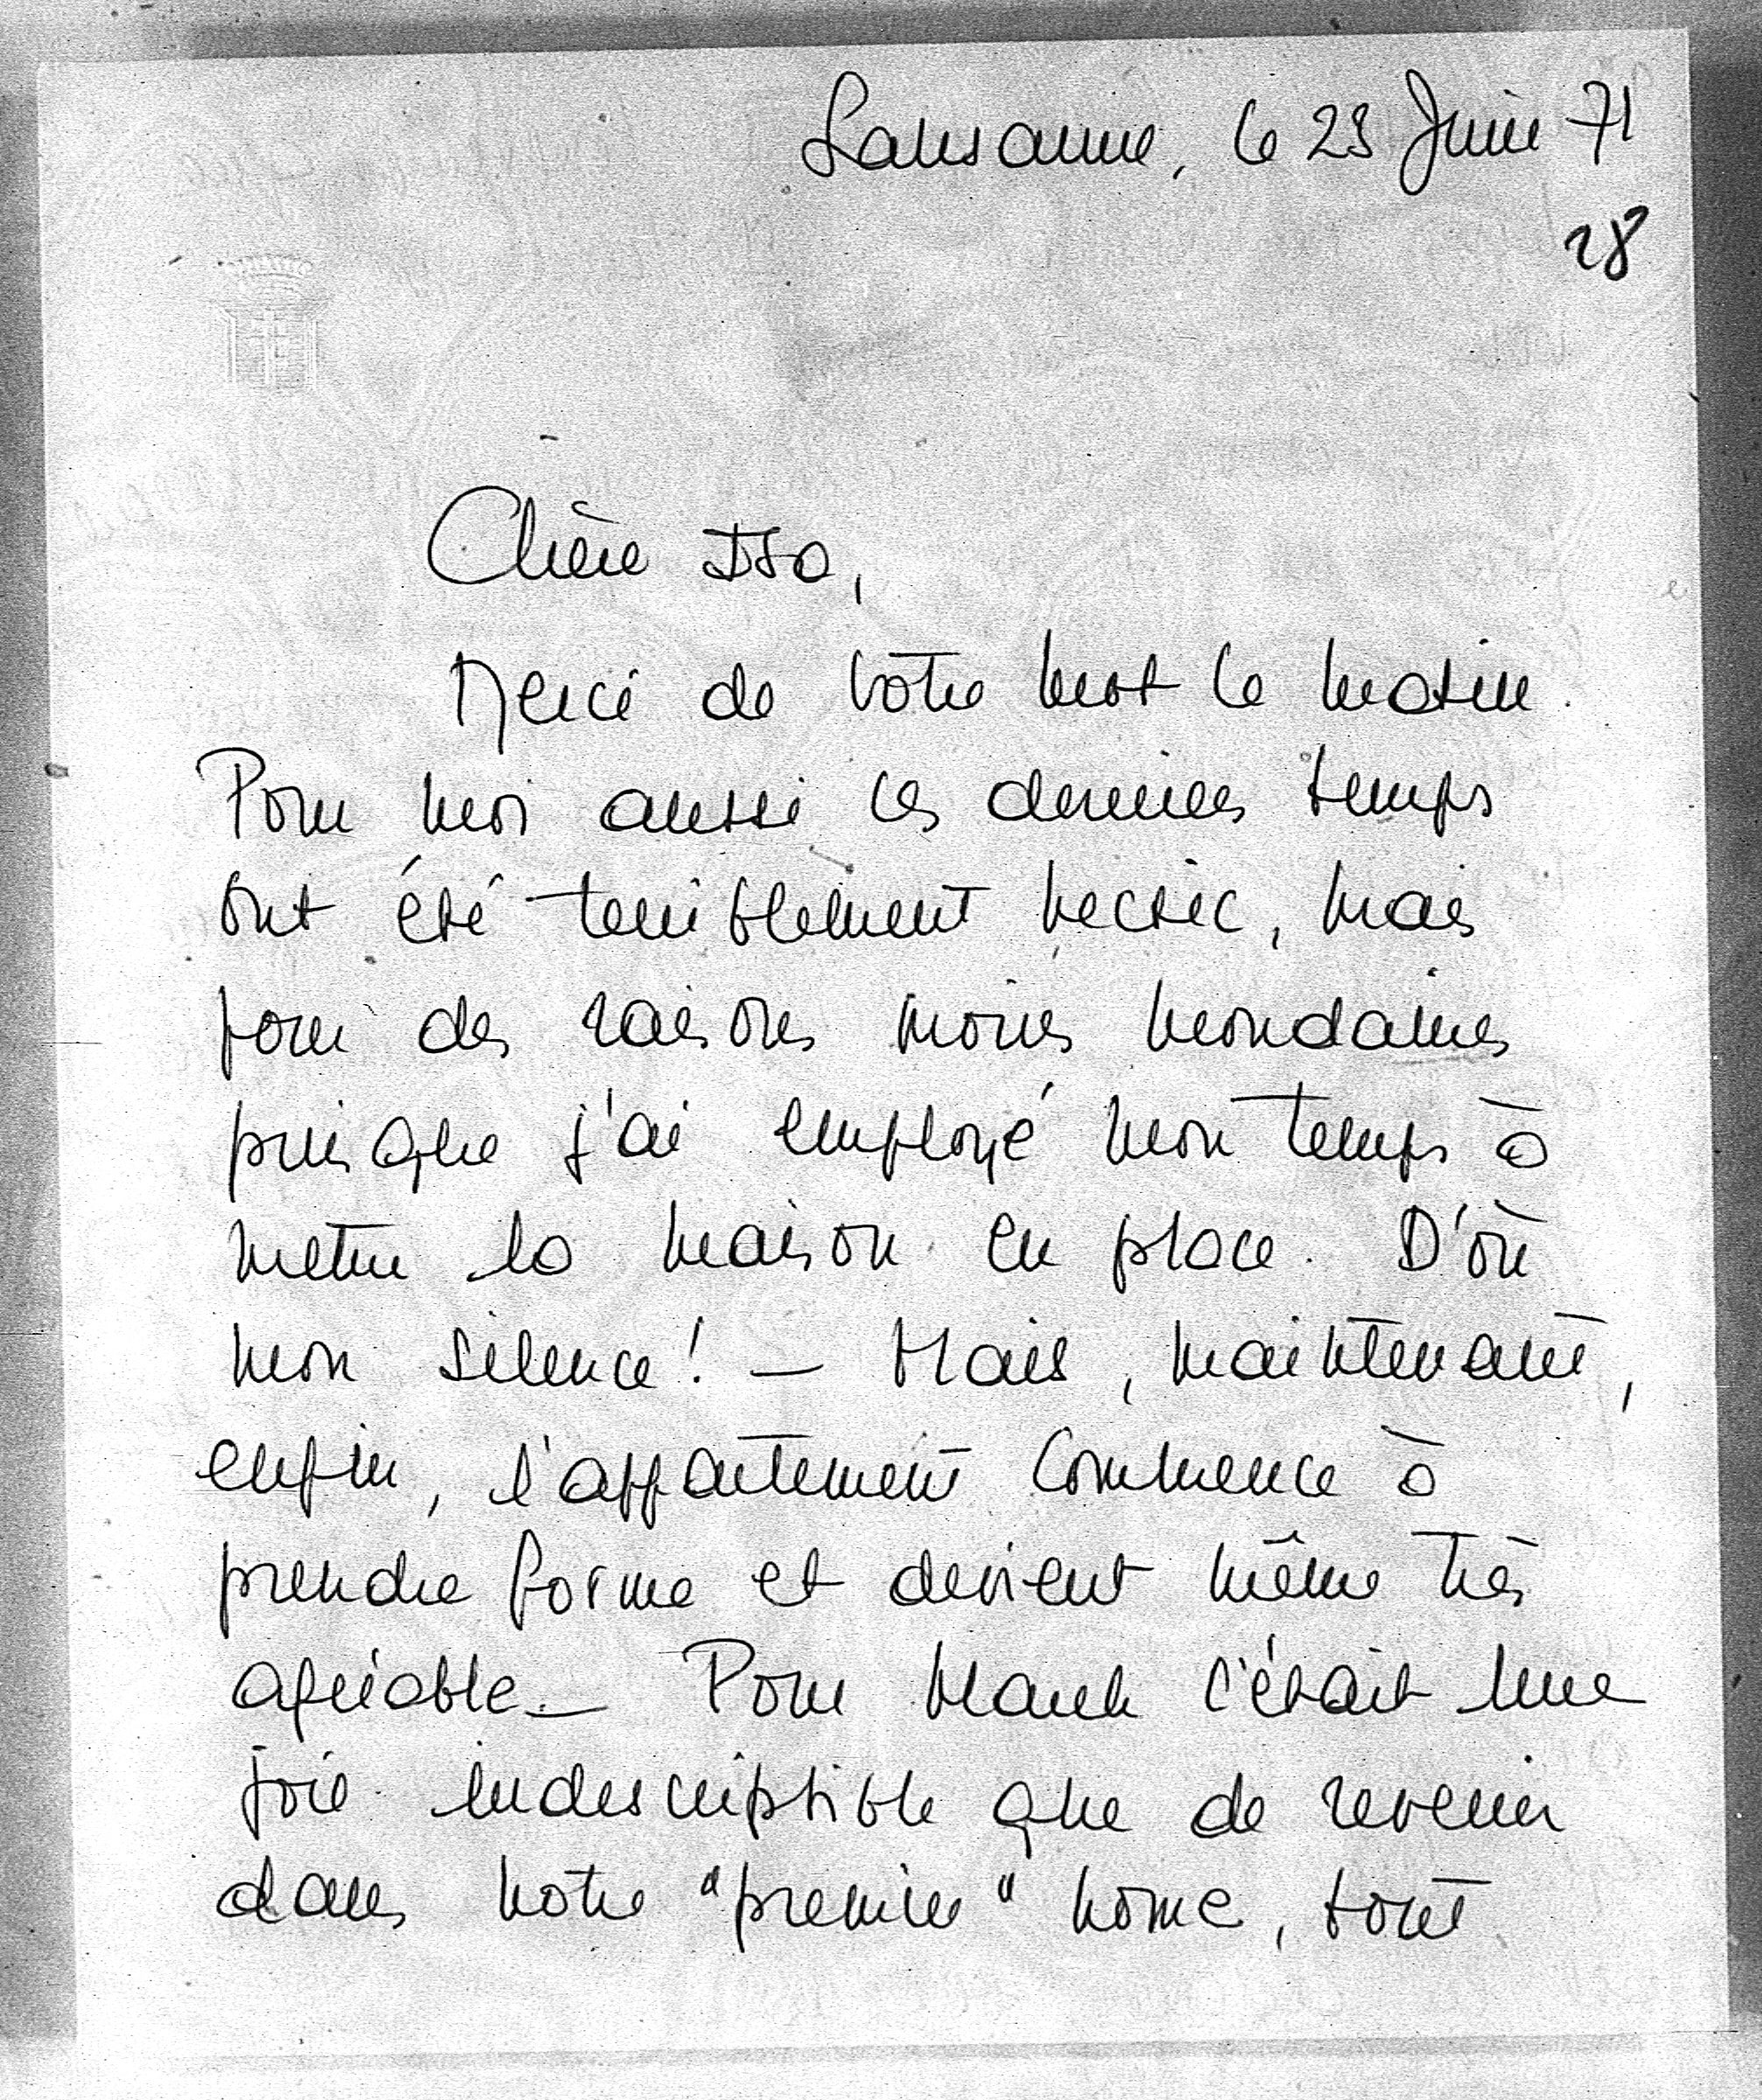 Lausanne, le 23 Juin 71
28
Chère Isa,
Merci de votre mot ce matin.
Pour moi aussi ces derniers temps
ont été terriblement hectic, mais
pour des raisons moins mondaines
puisque j'ai employé mon temps à
mettre la maison en place. D'où
mon silence! — Mais, maintenant,
enfin, l'appartement commence à
prendre forme et devient même très
agréable. — Pour c'était une
joie indescriptible que de revenir
dans notre "premier" home, tout